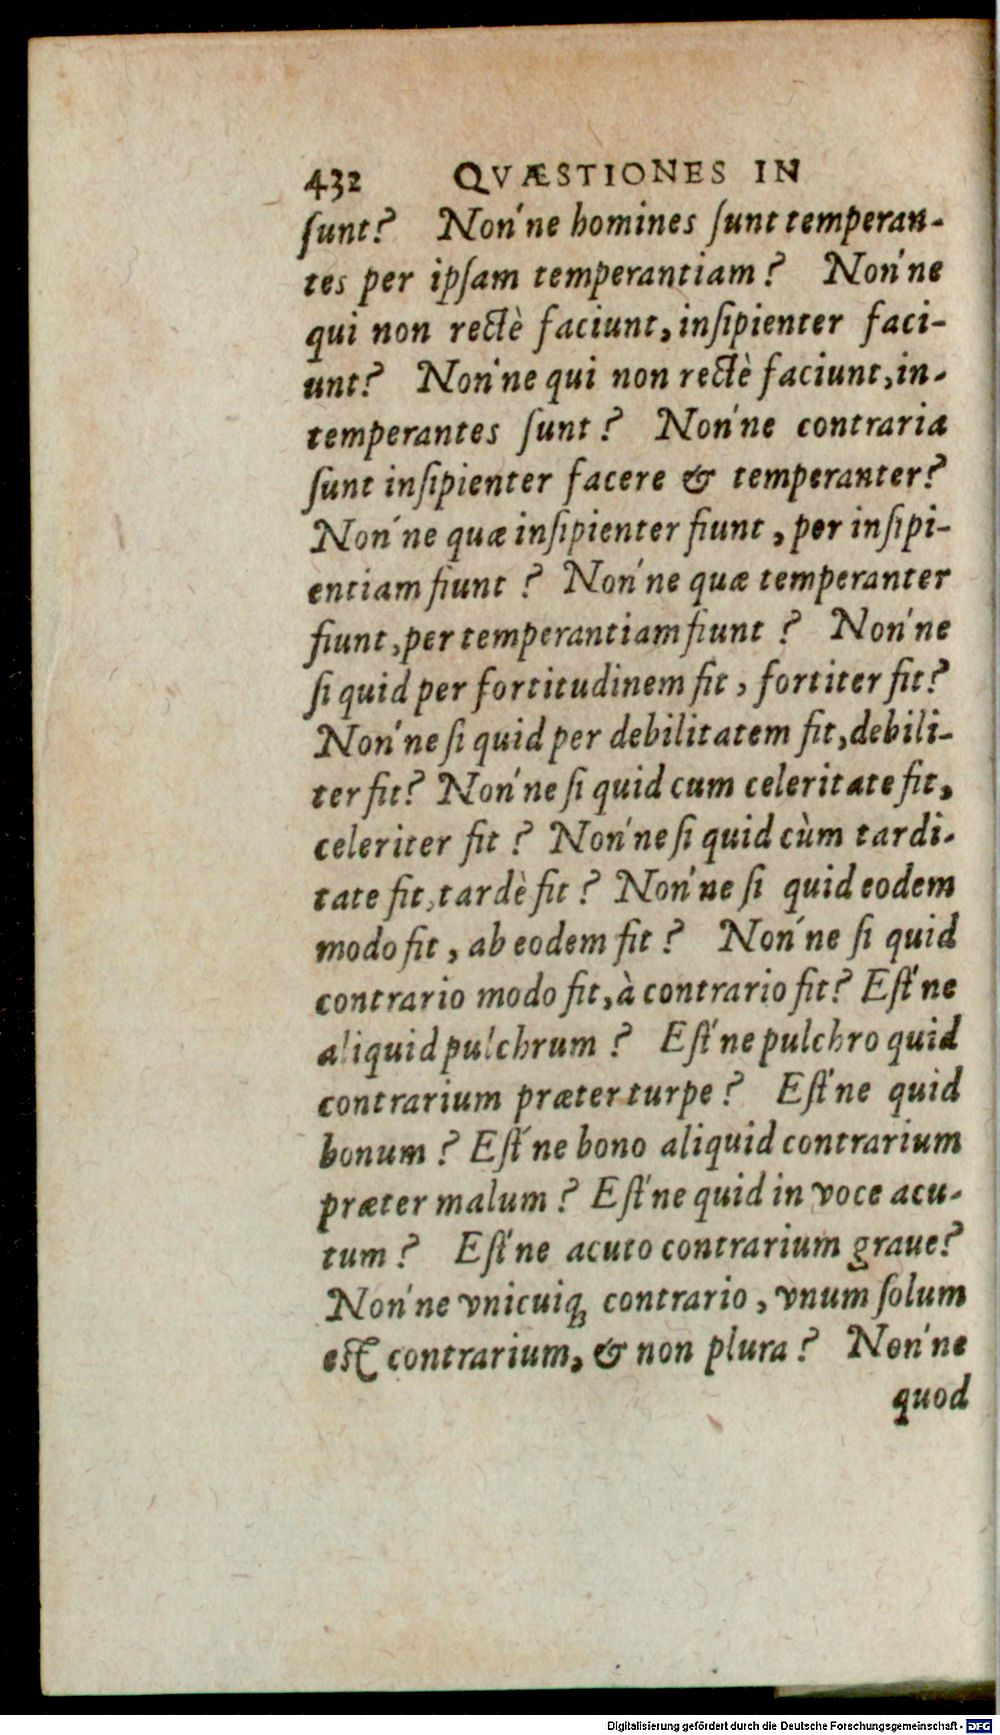 432 QVÆSTIONES IN
ſunt? Non'ne homines ſunt temperan-
tes per ipſam temperantiam? Non'ne
qui non rectè faciunt, inſipienter faci-
unt? Non'ne qui non rectè faciunt, in-
temperantes ſunt? Non'ne contraria
ſunt inſipienter facere & temperanter?
Non'ne quæ inſipienter fiunt, per inſipi-
entiam fiunt? Non'ne quæ temperanter
fiunt, per temperantiam fiunt? Non'ne
ſi quid per fortitudinem fit, fortiter fit?
Non'ne ſi quid per debilitatem fit, debili-
ter fit? Non'ne ſi quid cum celeritate fit,
celeriter fit? Non'ne ſi quid cùm tardi-
tate fit, tardè fit? Non'ne ſi quid eodem
modo fit, ab eodem fit? Non'ne ſi quid
contrario modo fit, à contrario fit? Eſt'ne
aliquid pulchrum? Eſt'ne pulchro quid
contrarium præter turpe? Eſt'ne quid
bonum? Eſt'ne bono aliquid contrarium
præter malum? Eſt'ne quid in voce acu-
tum? Eſt'ne acuto contrarium graue?
Non'ne vnicuiq; contrario, vnum ſolum
eſt contrarium, & non plura? Non'ne
quod
Digitalisierung gefördert durch die Deutsche Forschungsgemeinschaft - DFG